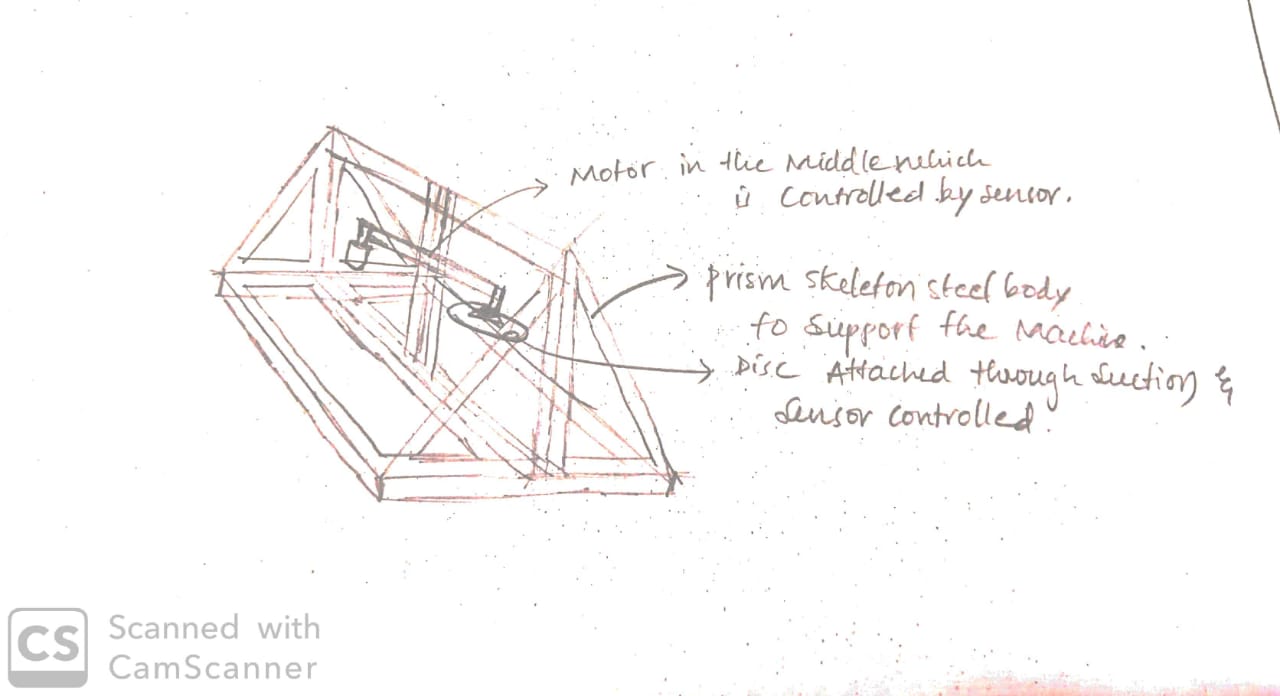 Motor in the Middle which
is Controlled by sensor.
prism skeleton steel body
to support the Machine.
Disc Attached through Suction &
Sensor controlled.
CS Scanned with
CamScanner